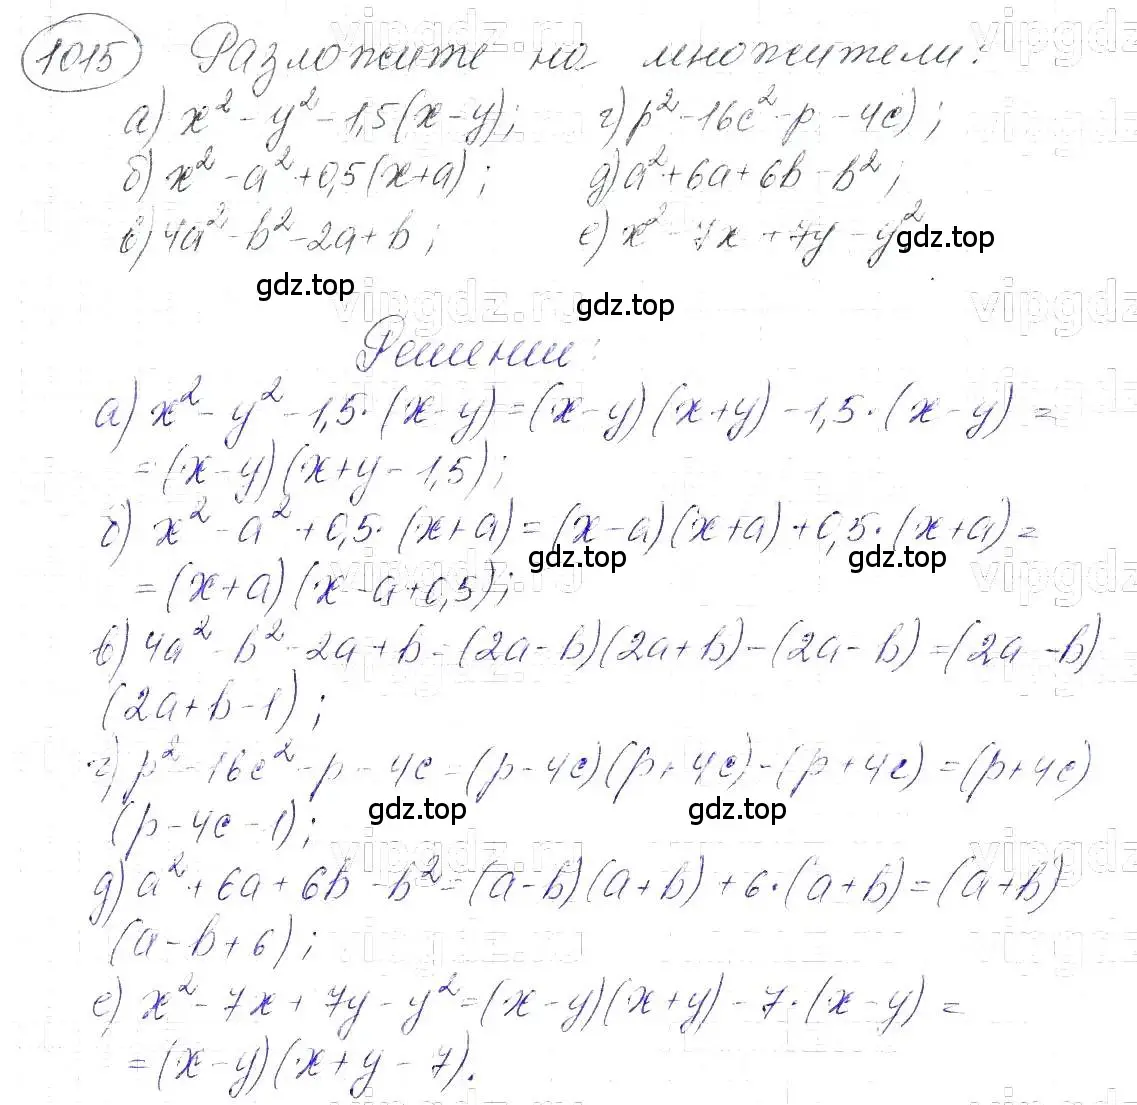 1015 Разложите на множители:
а) x² - y² - 1,5(x-y); г) p² - 16c² - p - 4c);
б) x² - a² + 0,5(x+a); д) a² + 6a + 6b - b²;
в) 4a² - b² - 2a + b; е) x² - 7x + 7y - y²
gdz.top
gdz.top
gdz.top
Решении:
а) x² - y² - 1,5·(x-y) = (x-y)(x+y) - 1,5·(x-y) =
= (x-y)(x+y-1,5);
б) x² - a² + 0,5·(x+a) = (x-a)(x+a) + 0,5·(x+a) =
gdz.top gdz.top
= (x+a)(x-a+0,5);
в) 4a² - b² - 2a + b = (2a-b)(2a+b) - (2a-b) = (2a-b)
(2a+b-1);
г) p² - 16c² - p - 4c = (p-4c)(p+4c) - (p+4c) = (p+4c)
gdz.top gdz.top
(p-4c-1);
д) a² + 6a + 6b - b² = (a-b)(a+b) + 6·(a+b) = (a+b)
(a-b+6);
е) x² - 7x + 7y - y² = (x-y)(x+y) - 7·(x-y) =
= (x-y)(x+y-7).